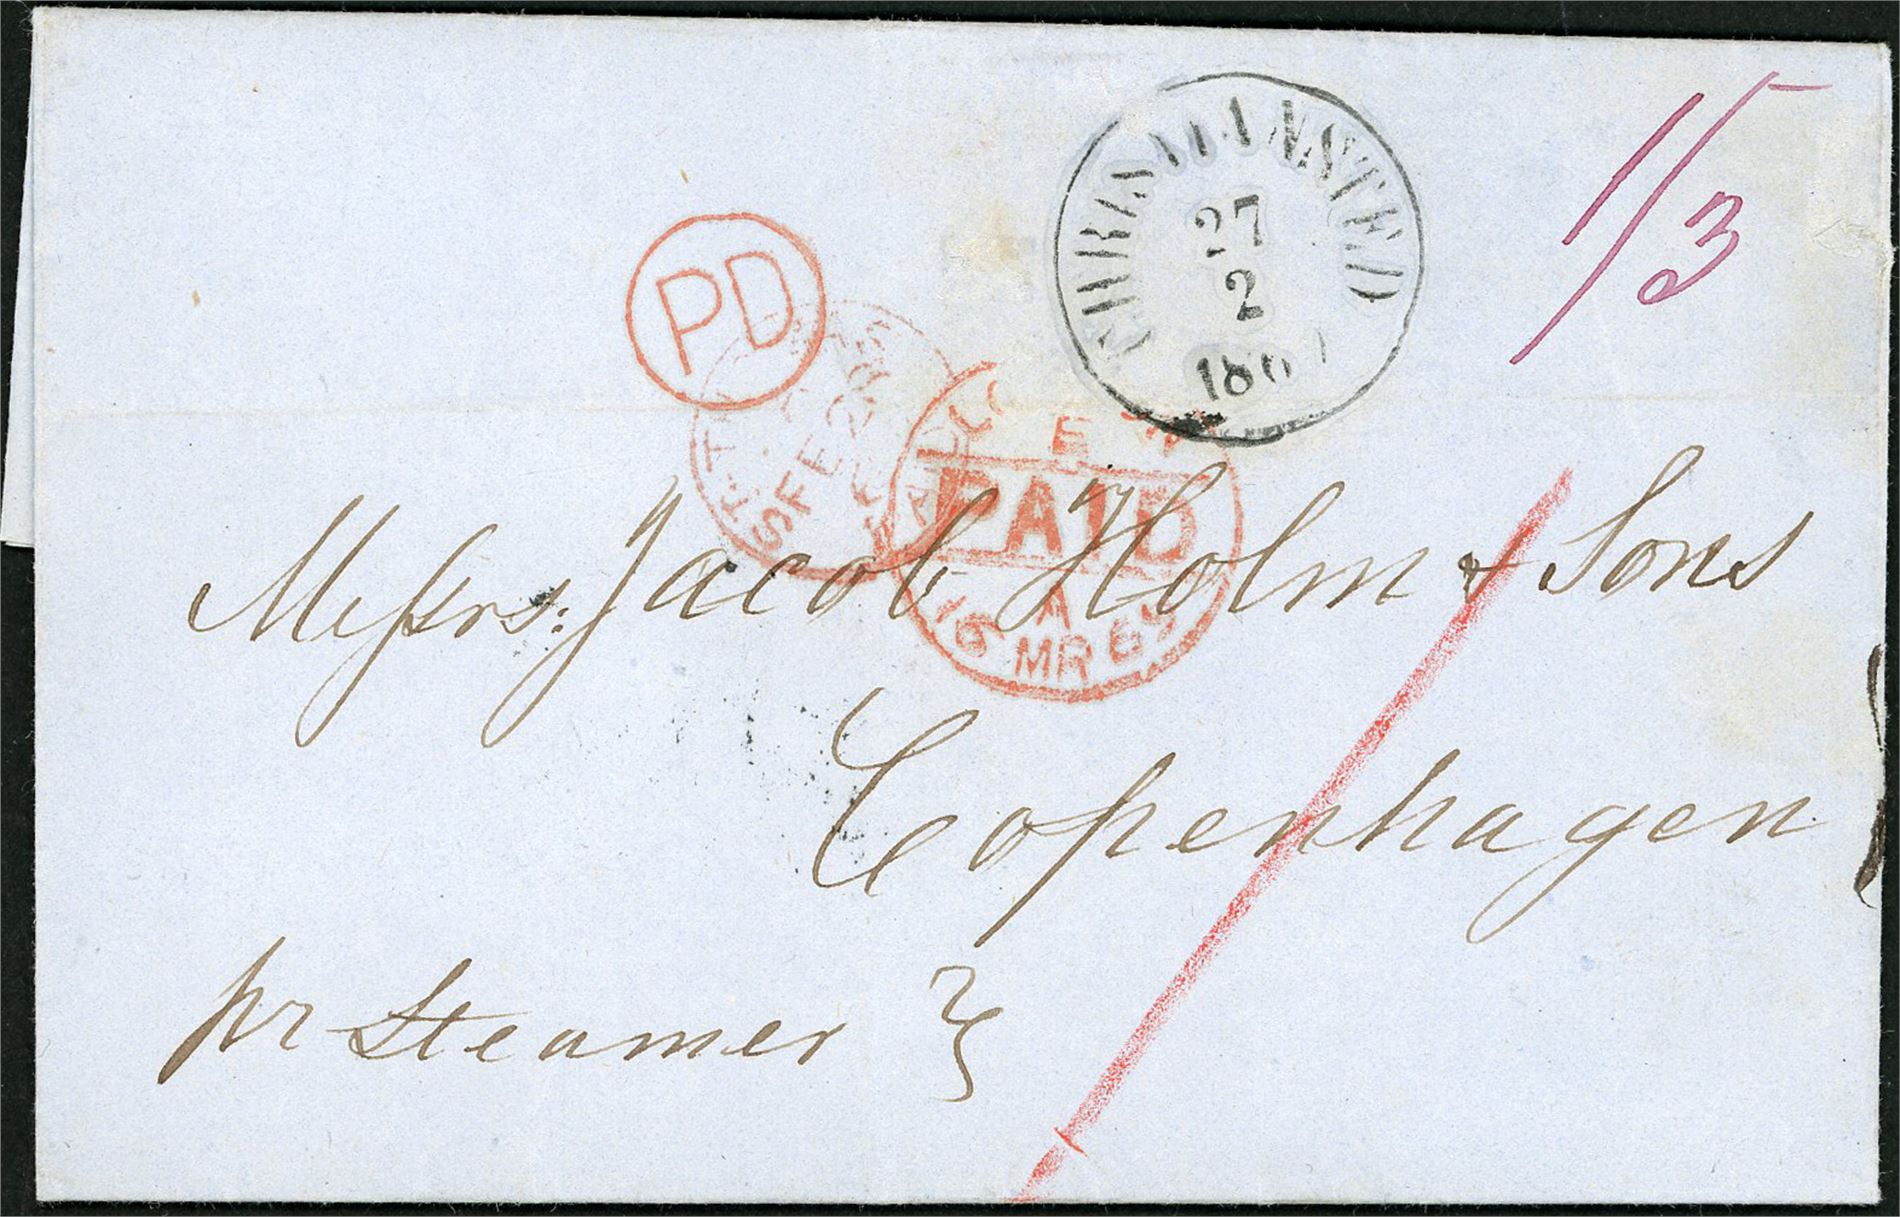 CHRISTIANSTED
27
2
186
1/3
PD
ST. THOMAS
FE 28
PAID
A
16 MR 65
Messrs: Jacob Holm & Sons
Copenhagen
pr Steamer